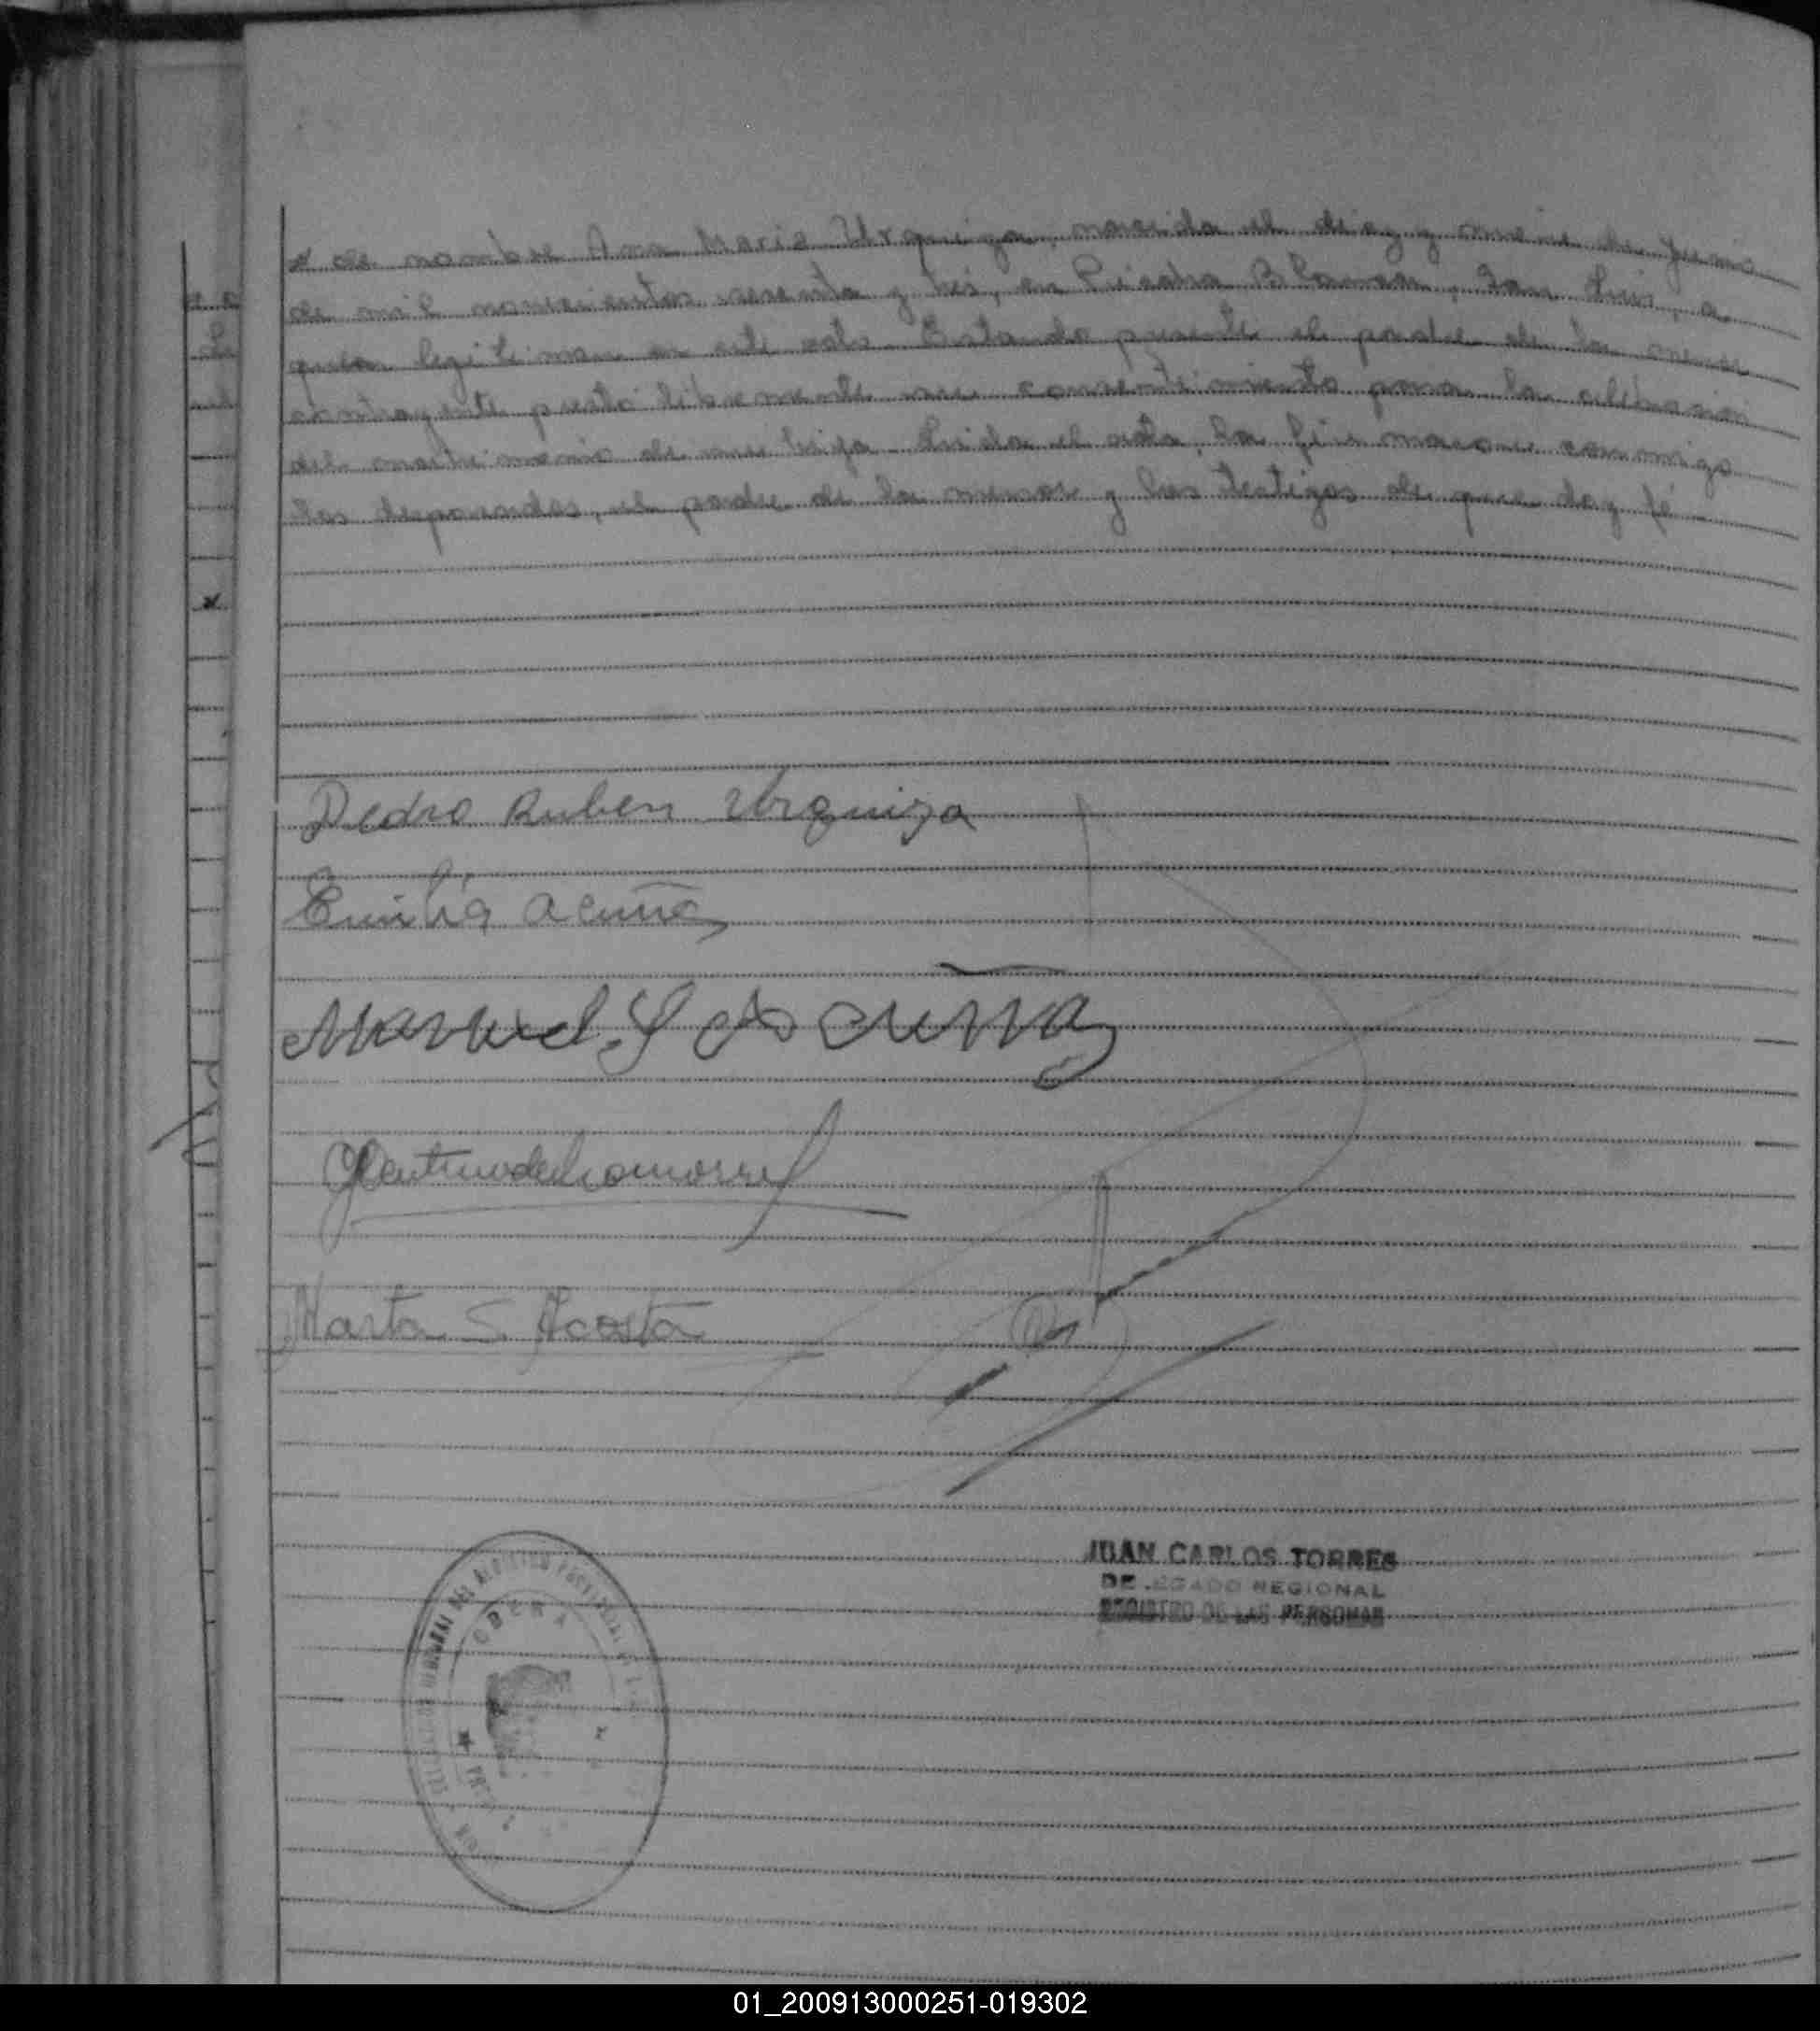 de nombre Ana Maria Urquiza, nacida el diez y nueve de Junio
de mil novecientos sesenta y tres, en Piedra Blanca, San Luis, a
quien legitiman en este acto. Estando presente el padre de la menor
contrayente prestó libremente su consentimiento para la celebración
del matrimonio de su hija. Leida el acta, la firmaron conmigo
los desposados, el padre de la menor y los testigos de que doy fé
Pedro Ruben Urquiza
Emilia Acuña
Manuel S Acuña
Marta S. Acosta
JUAN CARLOS TORRES
DELEGADO REGIONAL
REGISTRO DE LAS PERSONAS
01_200913000251-019302